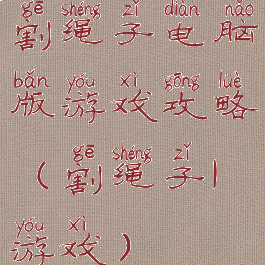 gē shéng zǐ diàn nǎo
割绳子电脑
bǎn yóu xì gōng lüè
版游戏攻略
gē shéng zǐ
(割绳子|
yóu xì
游戏)